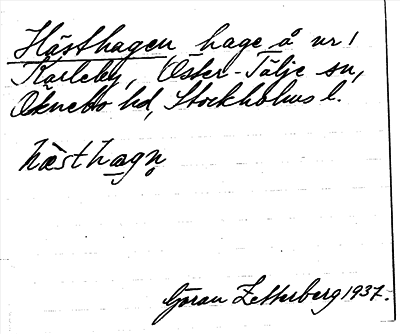 Hästhagen, hage å nr 1
Karleby, Öster-Tälje sn,
Öknebo hd, Stockholms l.
hæ̀sthagn̥
Göran Zetterberg 1937.